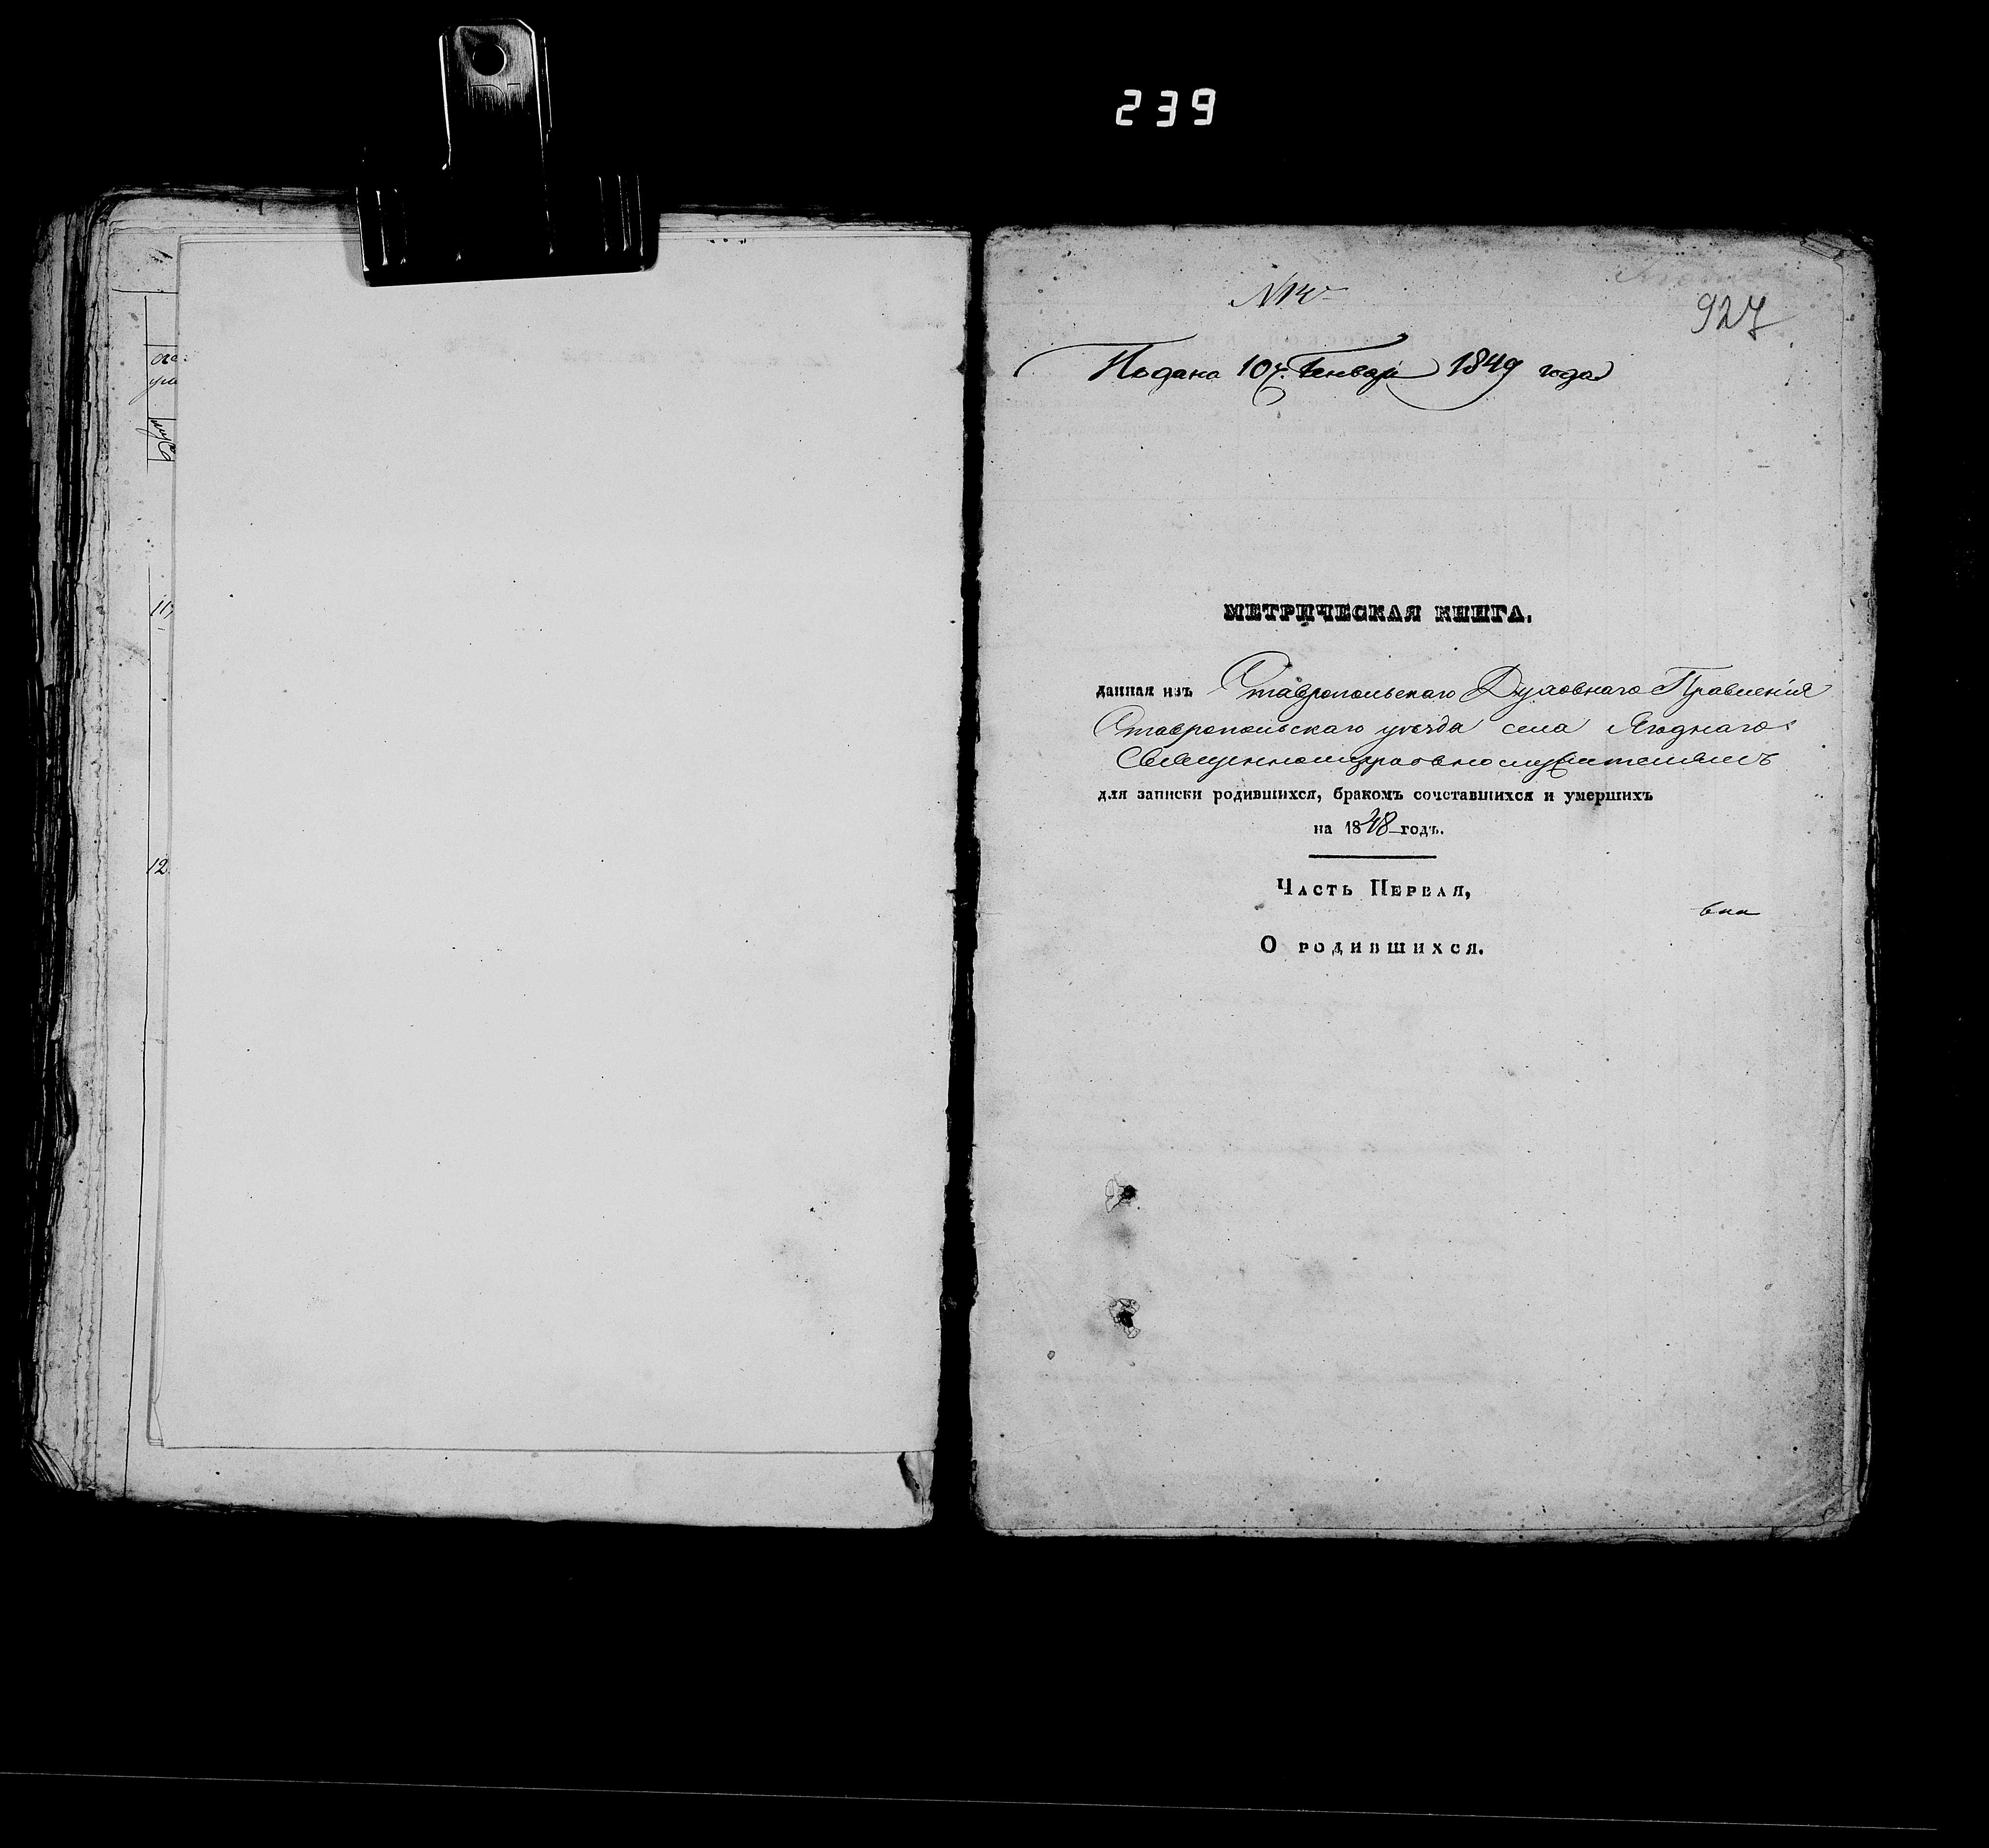 239
927
Подана 10 ч. Генваря 1849 года
МЕТРИЧЕСКАЯ КНИГА,
данная изъ Ставропольскаго Духовнаго Правленія
Ставропольскаго уезда села Ягоднаго
Священноцерковнослужителямъ
для записки родившихся, бракомъ сочетавшихся и умершихъ
на 1848 годъ.
Часть Первая,
О родившихся.
12